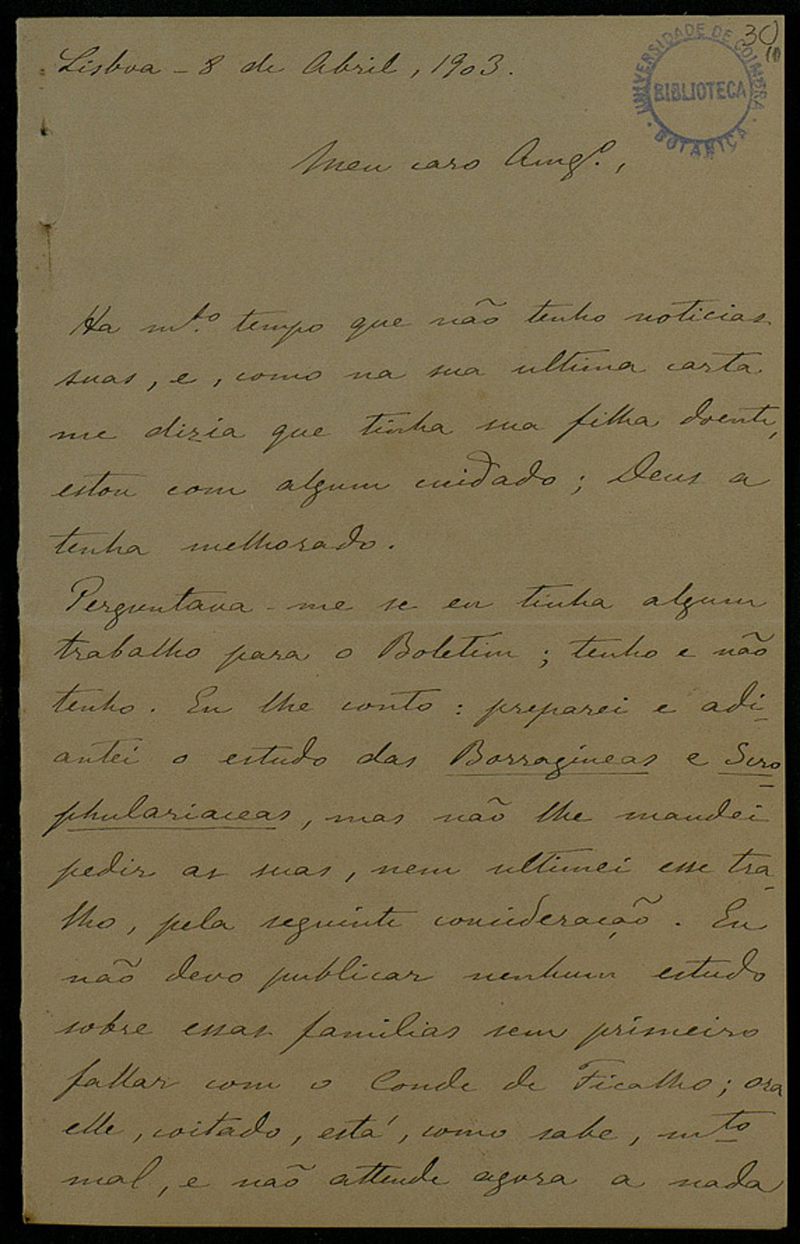 30
(1)
UNIVERSIDADE DE COIMBRA
BIBLIOTECA
BOTANICA
Lisboa - 8 de Abril, 1903.
Meu caro Amgº.,
Ha mto. tempo que não tenho noticias
suas, e, como na sua ultima carta
me dizia que tinha sua filha doente,
estou com algum cuidado; Deus a
tenha melhorado.
Perguntava-me se eu tinha algum
trabalho para o Boletim; tenho e não
tenho. Eu lhe conto: preparei e adi-
antei o estudo das Borragineas e Scro-
phulariaceas, mas não lhe mandei
pedir as suas, nem ultimei esse tra-
lho, pela seguinte consideração. Eu
não devo publicar nenhum estudo
sobre essas familias sem primeiro
fallar com o Conde de Ficalho; ora
elle, coitado, está, como sabe, mto
mal, e não attende agora a nada